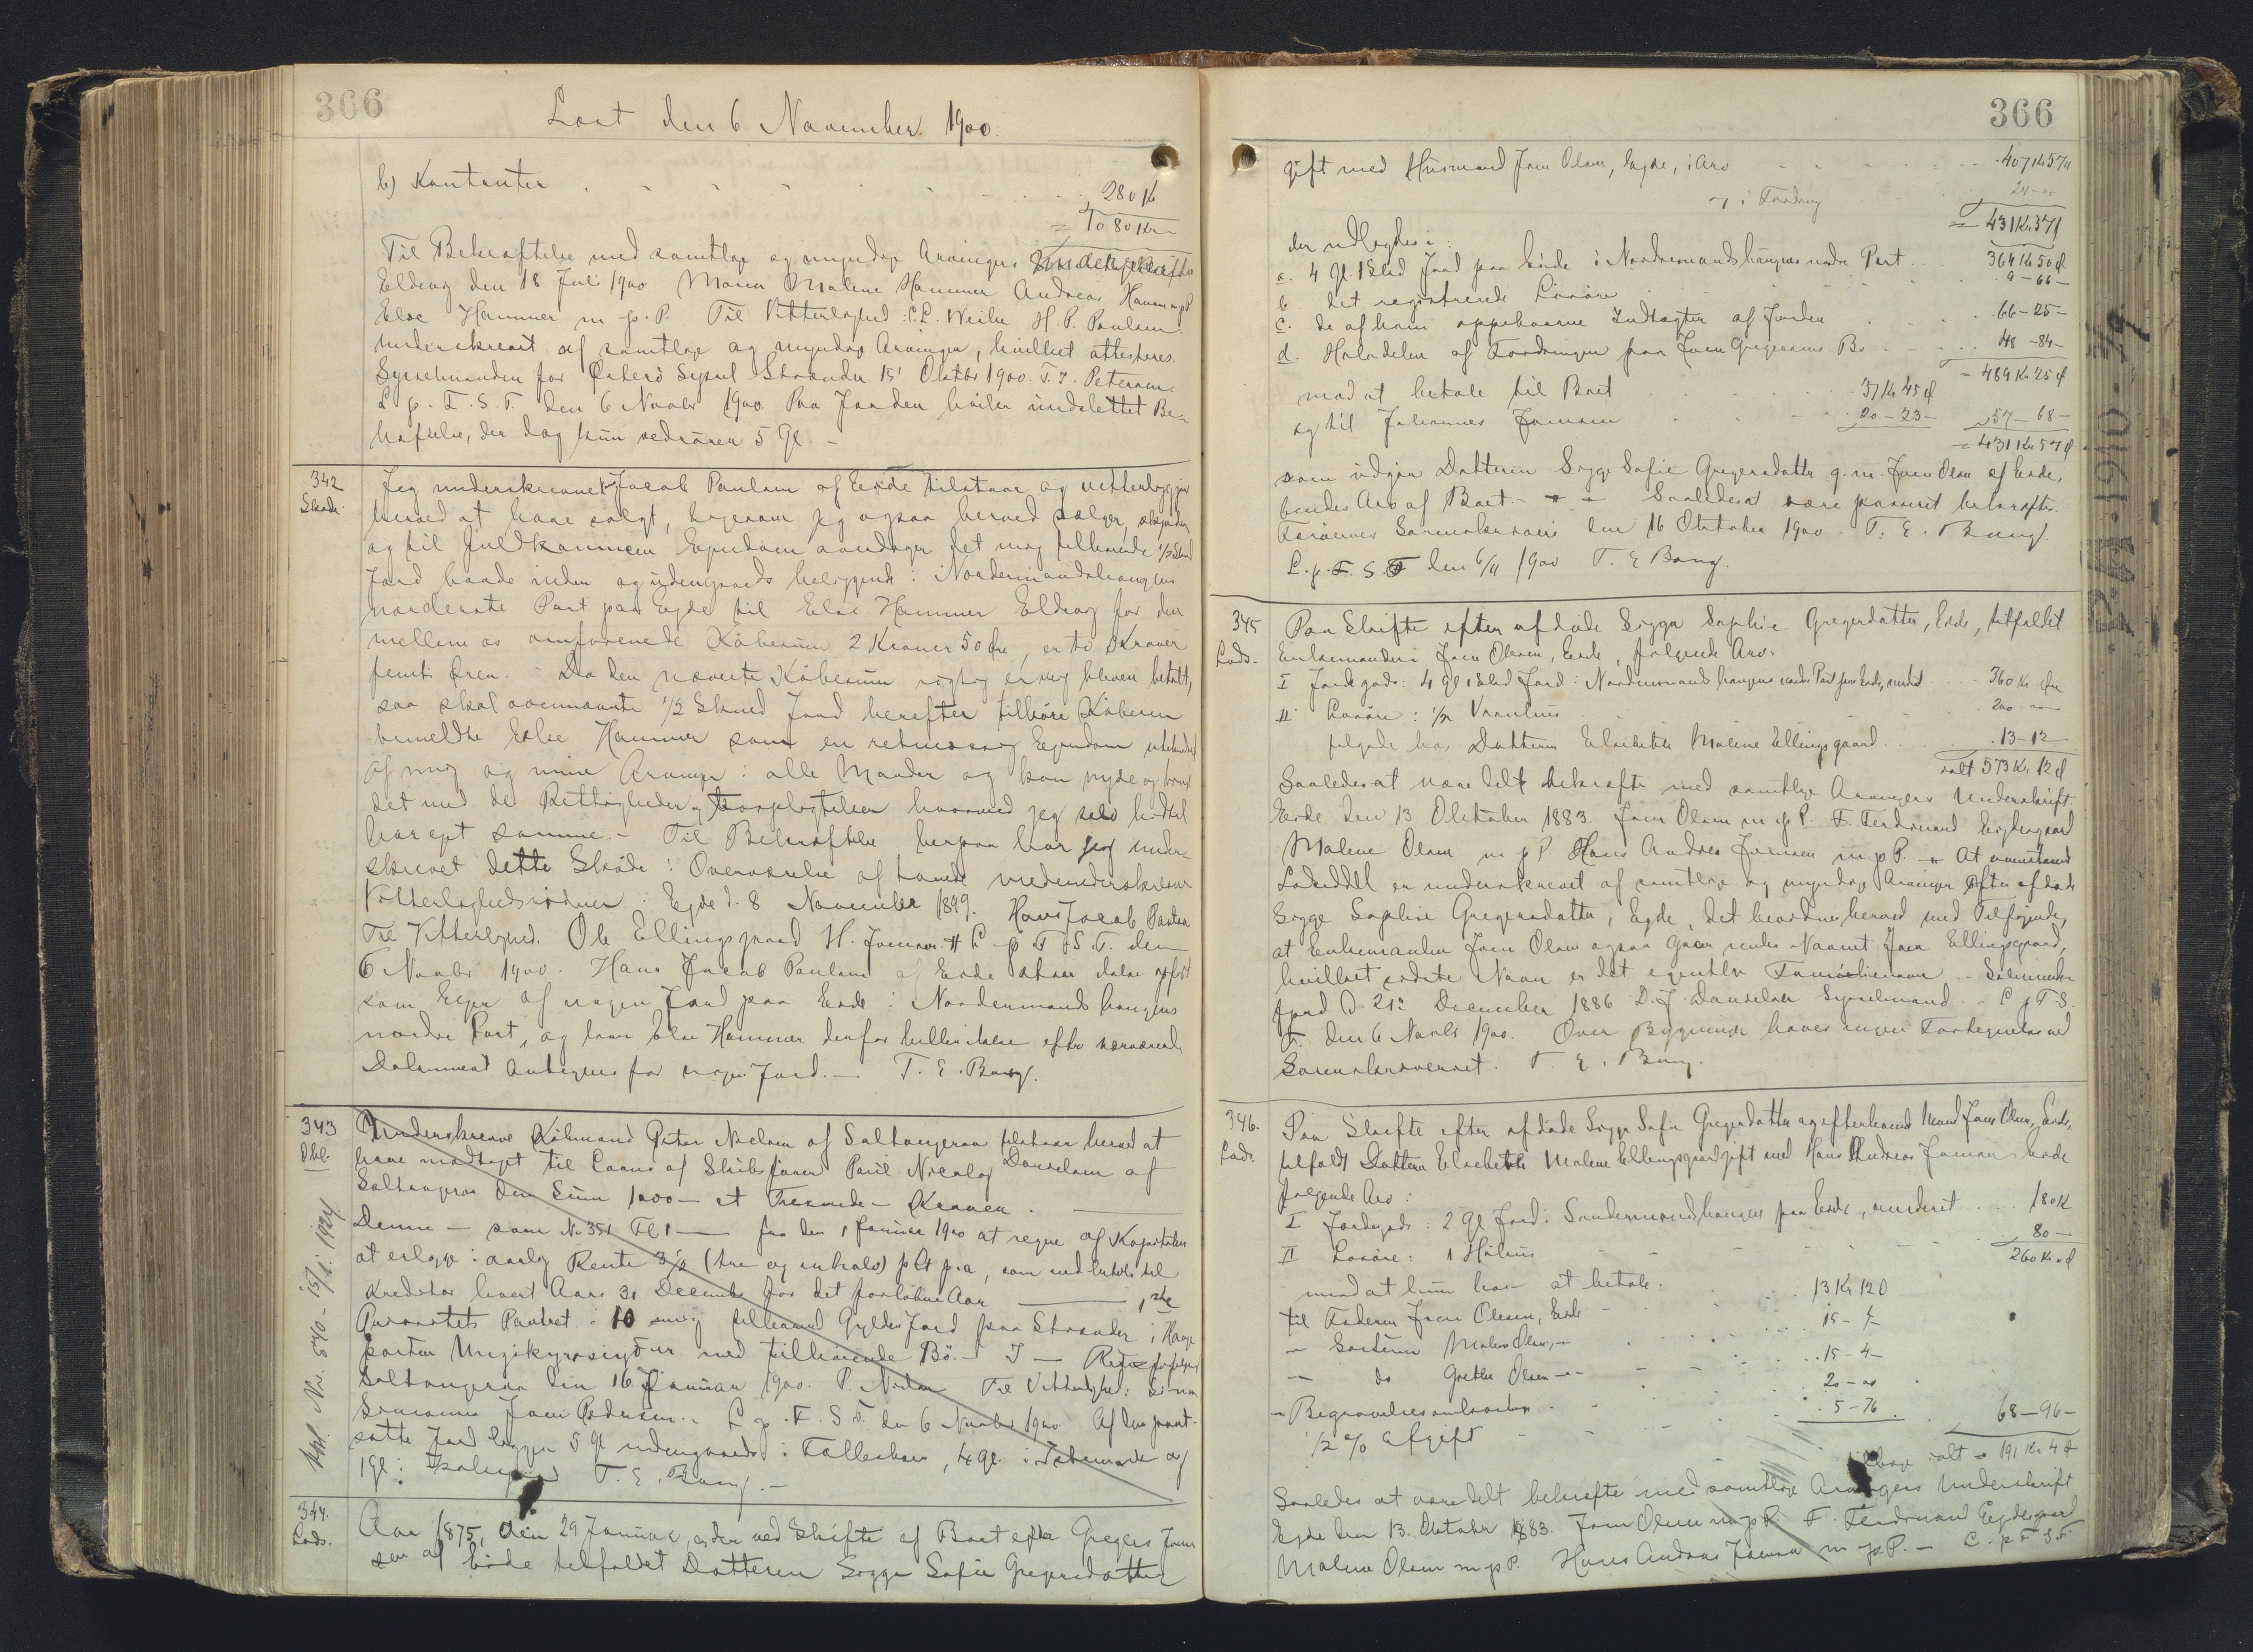 366
Læst den 6 November 1900.
b) Kontanter 280 Kr
= 1080 Kr
Til Bekræftelse med samtlige og myndige Arvingers Underskrifter
Elduvig den 18 Juli 1900 Maren Malene Hammer Andreas Hammer
Else Hammer m. p. P. Til Vitterlighed: H. P. Poulsen
Underskrevet af samtlige og myndige Arvinger, hvilket attesteres.
Sysselmanden for Østerø Syssel Strænder 15' Oktbr 1900. Petersen.
L. p. F. S. T. den 6 Novbr 1900. Paa Jorden hviler uudslettet Be-
hæftelse, der dog kun vedrører 5 Gl. —
342
Skøde.
Jeg underskrevne Hans Jacob Poulsen af Eide tilstaar og vitterliggjør
herved at have solgt, ligesom jeg ogsaa herved sælger, skjøder
og til fuldkommen Ejendom overdrager det mig tilhørende 1/2 Skind
Jord baade inden og udengaards beliggende i Nordremandshaugens
norderste Part paa Ejde til Else Hammer Elduvig for den
mellem os omforenede Købesum 2 Kroner 50 Øre, er to Kroner
femti Øren. - Da den nævnte Købesum rigtig er mig bleven betalt,
saa skal ovennævnte 1/2 Skind Jord herefter tilhøre Køberen
bemeldte Else Hammer som en retmæssig Ejendom
af mig og mine Arvinger i alle Maader og kan nyde og bruge
det med de Rettigheder og Forpligtelser hvormed jeg selv hidtil
har ejet samme. - Til Bekræftelse herpaa har jeg under-
skrevet dette Skøde i Overværelse af tvende medunderskrevne
Vitterlighedsvidner. Ejde d. 8 November 1899. Hans Jacob Poulsen
Til Vitterlighed. Ole Ellingsgaard H. Joensen. L. p. F. S. T. den
6 Novbr 1900. Hans Jacob Poulsen af Eide staar ikke opført
som Ejer af nogen Jord paa Eide i Nordremandshaugens
nordre Part, og kan Else Hammer derfor heller ikke efter nærværende
Dokument antegnes for nogen Jord. — T. E. Bang.
343
Obl.
Underskrevne Købmand Peter Nielsen af Saltangeraa tilstaar herved at
have modtaget til Laans af Skibsfører Poul Nicolaj Danielsen af
Saltangeraa den Sum 1000 — et Tusinde — Kroner.
Denne — som No 351 Fl 1 — fra den 1 Januar 1900 at regne af Kapitalen
at erlægge i aarlig Rente 3 1/2 (tre og enhalv) pCt p.a., som indbetales til
Kreditor hvert Aars 31 December for det forløbne Aar — 1ste
Prioritets Panteret i 10 mig tilhørende Gylden Jord paa Strænder i Hauge
parten med tilhørende Bø.
Saltangeraa den 16 Januar 1900. P. Nielsen Til Vitterlighed:
Joen Pedersen. L. p. F. S. T. den 6 Novbr 1900 Af den pant-
satte Jord ligger 5 Gl udengaards i Fælleshaven, 4 Gl. i og
1 Gl. i T. E. Bang. —
344.
Lods.
Aar 1875, den 29 Januar, er der ved Skifte af Boet efter Gregers Joen-
sen af Eide tilfaldet Datteren Sigge Sofie Gregersdatter
366
gift med Husmand Joen Olsen, Eyde, i Arv 407 Kr 57 Ø
i Fordring 24 - 00
= 431 Kr. 57 Ø
der udlægdes i:
a. 4 Gl. 1 Skd Jord paa Eide i Nordremandshaugens nordre Part 364 Kr 50 Ø
b. det registrerede Løsøre 9 - 66 -
c. de af ham oppebaarne Indtægter af Jorden 66 - 25 -
d. Halvdelen af Fordringen paa Joen Gregersens Bo 48 - 84 -
= 489 Kr 25 Ø
mod at betale til Boet 37 Kr 45 Ø
og til Johannes Joensen 20 - 23 - 57 - 68 -
= 431 Kr 57 Ø
som udgør Datteren Sigge Sofie Gregersdatter g. m. Joen Olsen af Eide,
hendes Arv af Boet. - Saaledes at være passeret bekræftes.
Færøernes Sorenskriveri den 16 Oktober 1900. T. E. Bang.
L. p. F. S. T. den 6/11 1900 T. E. Bang.
345
Lods.
Paa Skifte efter afdøde Sigga Sophie Gregersdatter, Eide, tilfaldt
Enkemanden Joen Olsen, Eide, følgende Arv:
I Jordegods: 4 Gl 1 Skd Jord i Nordremandshaugens nordre Part paa Eide, vurderet 360 Kr
II Løsøre: 1/2 Vaanhus 200 -
tilgode hos Datteren Elsebeth Malene Ellingsgaard 13 - 12
ialt 573 Kr. 12 Ø
Saaledes at være delt bekræfte med samtlige Arvingers Underskrift.
Eide den 13 Oktober 1883. Joen Olsen m. p. P. F. Ferdinand Eydesgaard
Malene Olsen m p P Hans Andreas Joensen m p P. - At ovenstaaende
Lodseddel er underskrevet af samtlige og myndige Arvinger efter afdøde
Sigge Sophie Gregersdatter, Eyde, det bevidnes herved med Tilføjende,
at Enkemanden Joen Olsen ogsaa gaaer under Navnet Joen Ellingsgaard,
hvilket sidste Navn er det egentlige Familienavn.
D. 21: December 1886 D. J. Danielsen Sysselmand. - L p F. S.
T. den 6 Novbr 1900. Over Bygninger haves ingen Fortegnelse ved
Sorenskriveriet. T. E. Bang.
346.
Lods.
Paa Skifte efter afdøde Sigge Sofie Gregersdatter og efterlevende Mand Joen Olsen, Eide,
tilfaldt Datteren Elsebeth Malene Ellingsgaard gift med Hans Andreas Joensen Eide
følgende Arv:
I Jordegods: 2 Gl Jord i Sandermandshaugen paa Eide, vurderet 180 K
II Løsøre: 1 Hus 80 -
260 Kr. Ø
mod at hun har at betale:
til Faderen Joen Olsen, Eide 13 Kr 12 Ø
- Søsteren Malene Olsen, - 15 - 4 -
- do Grethe Olsen - 15 - 4 -
- Begravelsesomkostn. 20 - 00
1/2 % Afgift 5 - 76 68 - 96 -
tilbage ialt = 191 Kr 4 Ø
Saaledes at være delt bekræfte med samtlige Arvingers Underskrift
Ejde den 13. Oktober 1883. Joen Olsen m p P. F. Ferdinand Eydesgaard
Malene Olsen m p P. Hans Andreas Joensen m p P. — L. p F S T.